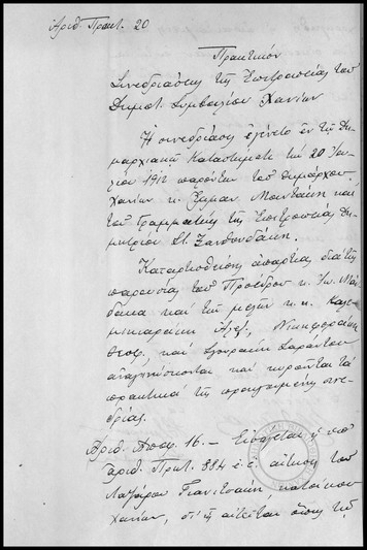 Ἀριθ. Πρακτ. 20
Πρακτικὸν
Συνεδριάσεως τῆς Ἐπιτροπείας τοῦ
Δημοτ. Συμβουλίου Χανίων
Ἡ συνεδρίασις ἐγένετο ἐν τῷ Δη-
μαρχιακῷ Καταστήματι τὴν 20 Ἰου-
λίου 1912 παρόντων τοῦ Δημάρχου
Χανίων κ. Μουντάκη καὶ
τοῦ Γραμματέως τῆς Ἐπιτροπείας Δη-
μητρίου Στ. Ξανθουδάκη.
Καταρτισθείσης ἀπαρτίας διὰ τῆς
παρουσίας τοῦ Προέδρου κ.
καὶ τῶν μελῶν κ. κ. Καλε-
Ἀλεξ., Νικηφοράκη
Θεοχ. καὶ Σαράντου
ἀναγινώσκονται καὶ κυροῦνται τὰ
πρακτικὰ τῆς προηγουμένης συνε-
δρίας.
Ἀριθ. Ἀποφ. 16. – Εἰσάγεται ἡ ὑπ'
ἀριθ. Πρωτ. 884 ἐ. ἔ. αἴτησις τοῦ
Λαζάρου Γιανιτσάκη, κατοίκου
Χανίων, δι' ἧς αἰτεῖται ὅπως τῷ